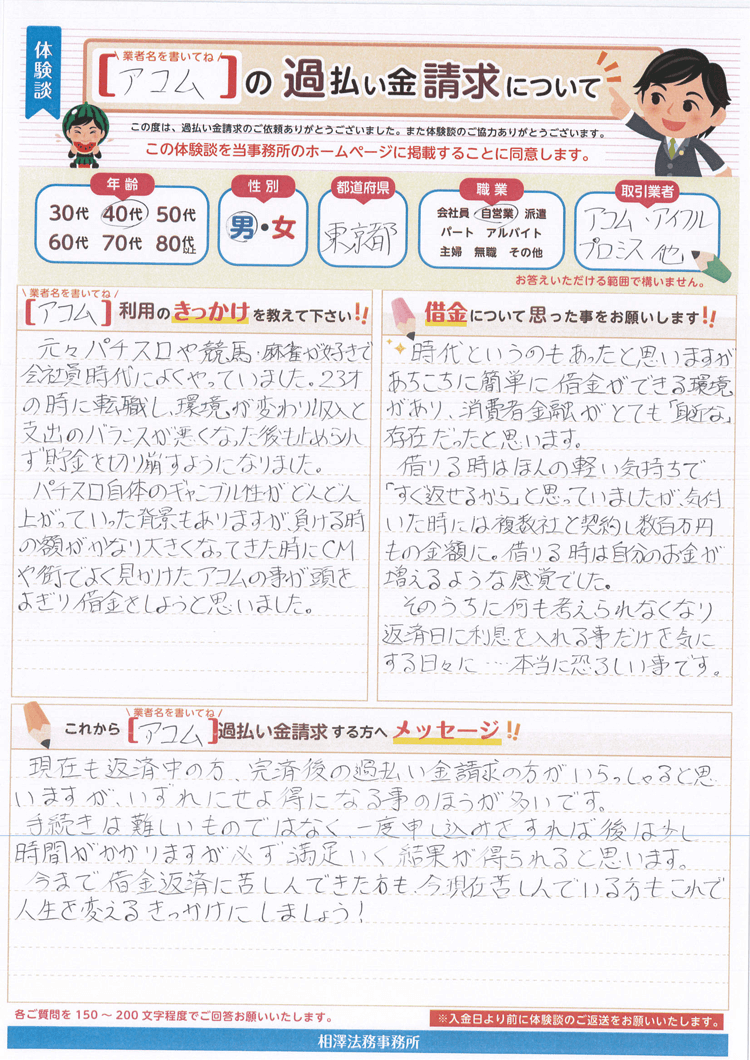 体験談
業者名を書いてね
[アコム]の過払い金請求について
この度は、過払い金請求のご依頼ありがとうございました。また体験談のご協力ありがとうございます。
この体験談を当事務所のホームページに掲載することに同意します。
年齢
30代 40代 50代
60代 70代 80代以上
性別
男・女
都道府県
東京都
職業
会社員 自営業 派遣
パート アルバイト
主婦 無職 その他
取引業者
アコム・アイフル
プロミス 他
お答えいただける範囲で構いません。
業者名を書いてね
[アコム]利用のきっかけを教えて下さい!!
元々パチスロや競馬・麻雀が好きで
会社員時代によくやっていました。23才
の時に転職し、環境が変わり収入と
支出のバランスが悪くなった後も止められ
ず貯金を切り崩すようになりました。
パチスロ自体のギャンブル性がどんどん
上がっていった背景もありますが、負ける時
の額がかなり大きくなってきた時にCM
や街でよく見かけたアコムの事が頭を
よぎり借金をしようと思いました。
借金について思った事をお願いします!!
時代というのもあったと思いますが
あちこちに簡単に借金ができる環境
があり、消費者金融がとても「身近な」
存在だったと思います。
借りる時はほんの軽い気持ちで
「すぐ返せるから」と思っていましたが、気付
いた時には複数社と契約し数百万円
もの金額に。借りる時は自分のお金が
増えるような感覚でした。
そのうちに何も考えられなくなり
返済日に利息を入れる事だけを気に
する日々に…本当に恐ろしい事です。
業者名を書いてね
これから[アコム]過払い金請求する方へメッセージ!!
現在も返済中の方、完済後の過払い金請求の方がいらっしゃると思
いますが、いずれにせよ得になる事のほうが多いです。
手続きは難しいものではなく、一度申し込みをすれば後は少し
時間がかかりますが必ず満足いく結果が得られると思います。
今まで借金返済に苦しんできた方も、今現在苦しんでいる方もこれで
人生を変えるきっかけにしましょう!
各ご質問を150～200文字程度でご回答お願いいたします。
※入金日より前に体験談のご返送をお願いいたします。
相澤法務事務所